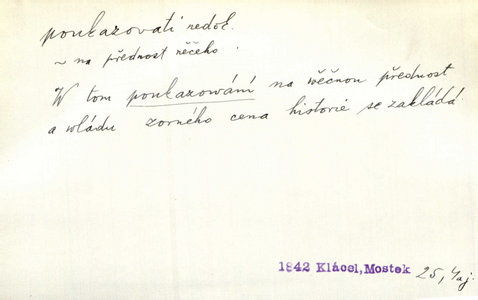 poukazovati nedok.
~ na přednost něčeho
W tom poukazowání na wěčnou přednost
a wládu zorného cena historie se zakládá.
1842 Klácel, Mostek 25, 4aj.